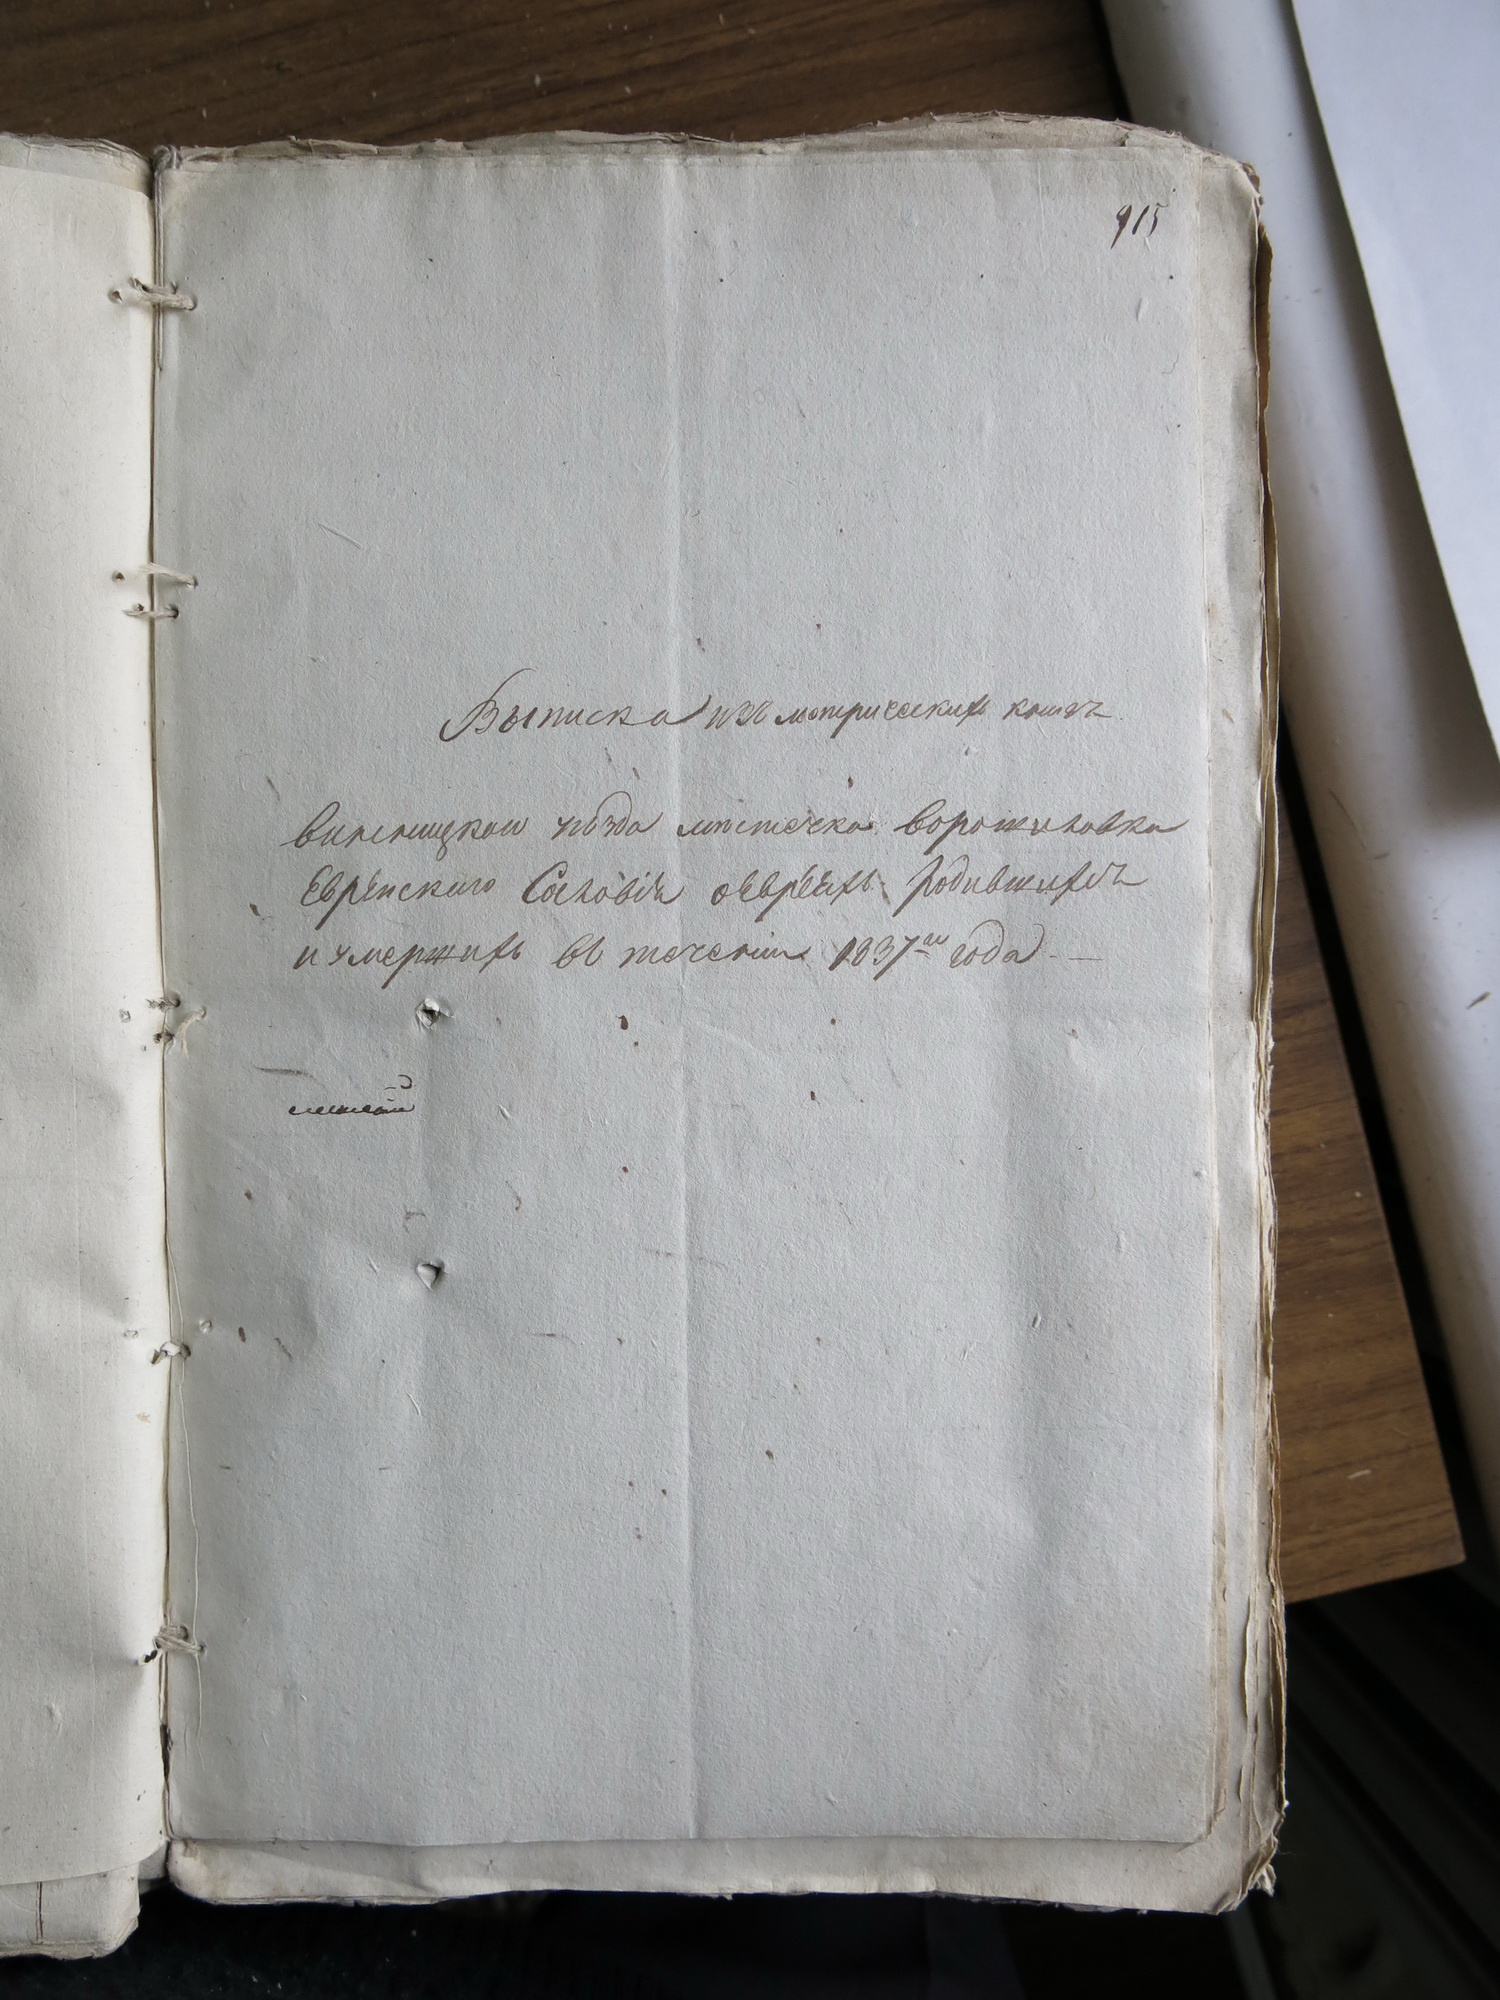 915
Выписка изъ метрическихъ книгъ
винницкаго уѣзда мѣстечка ворошиловка
Еврейскаго Сословія оевреяхъ родившихся
и умершихъ въ теченіи 1837го года